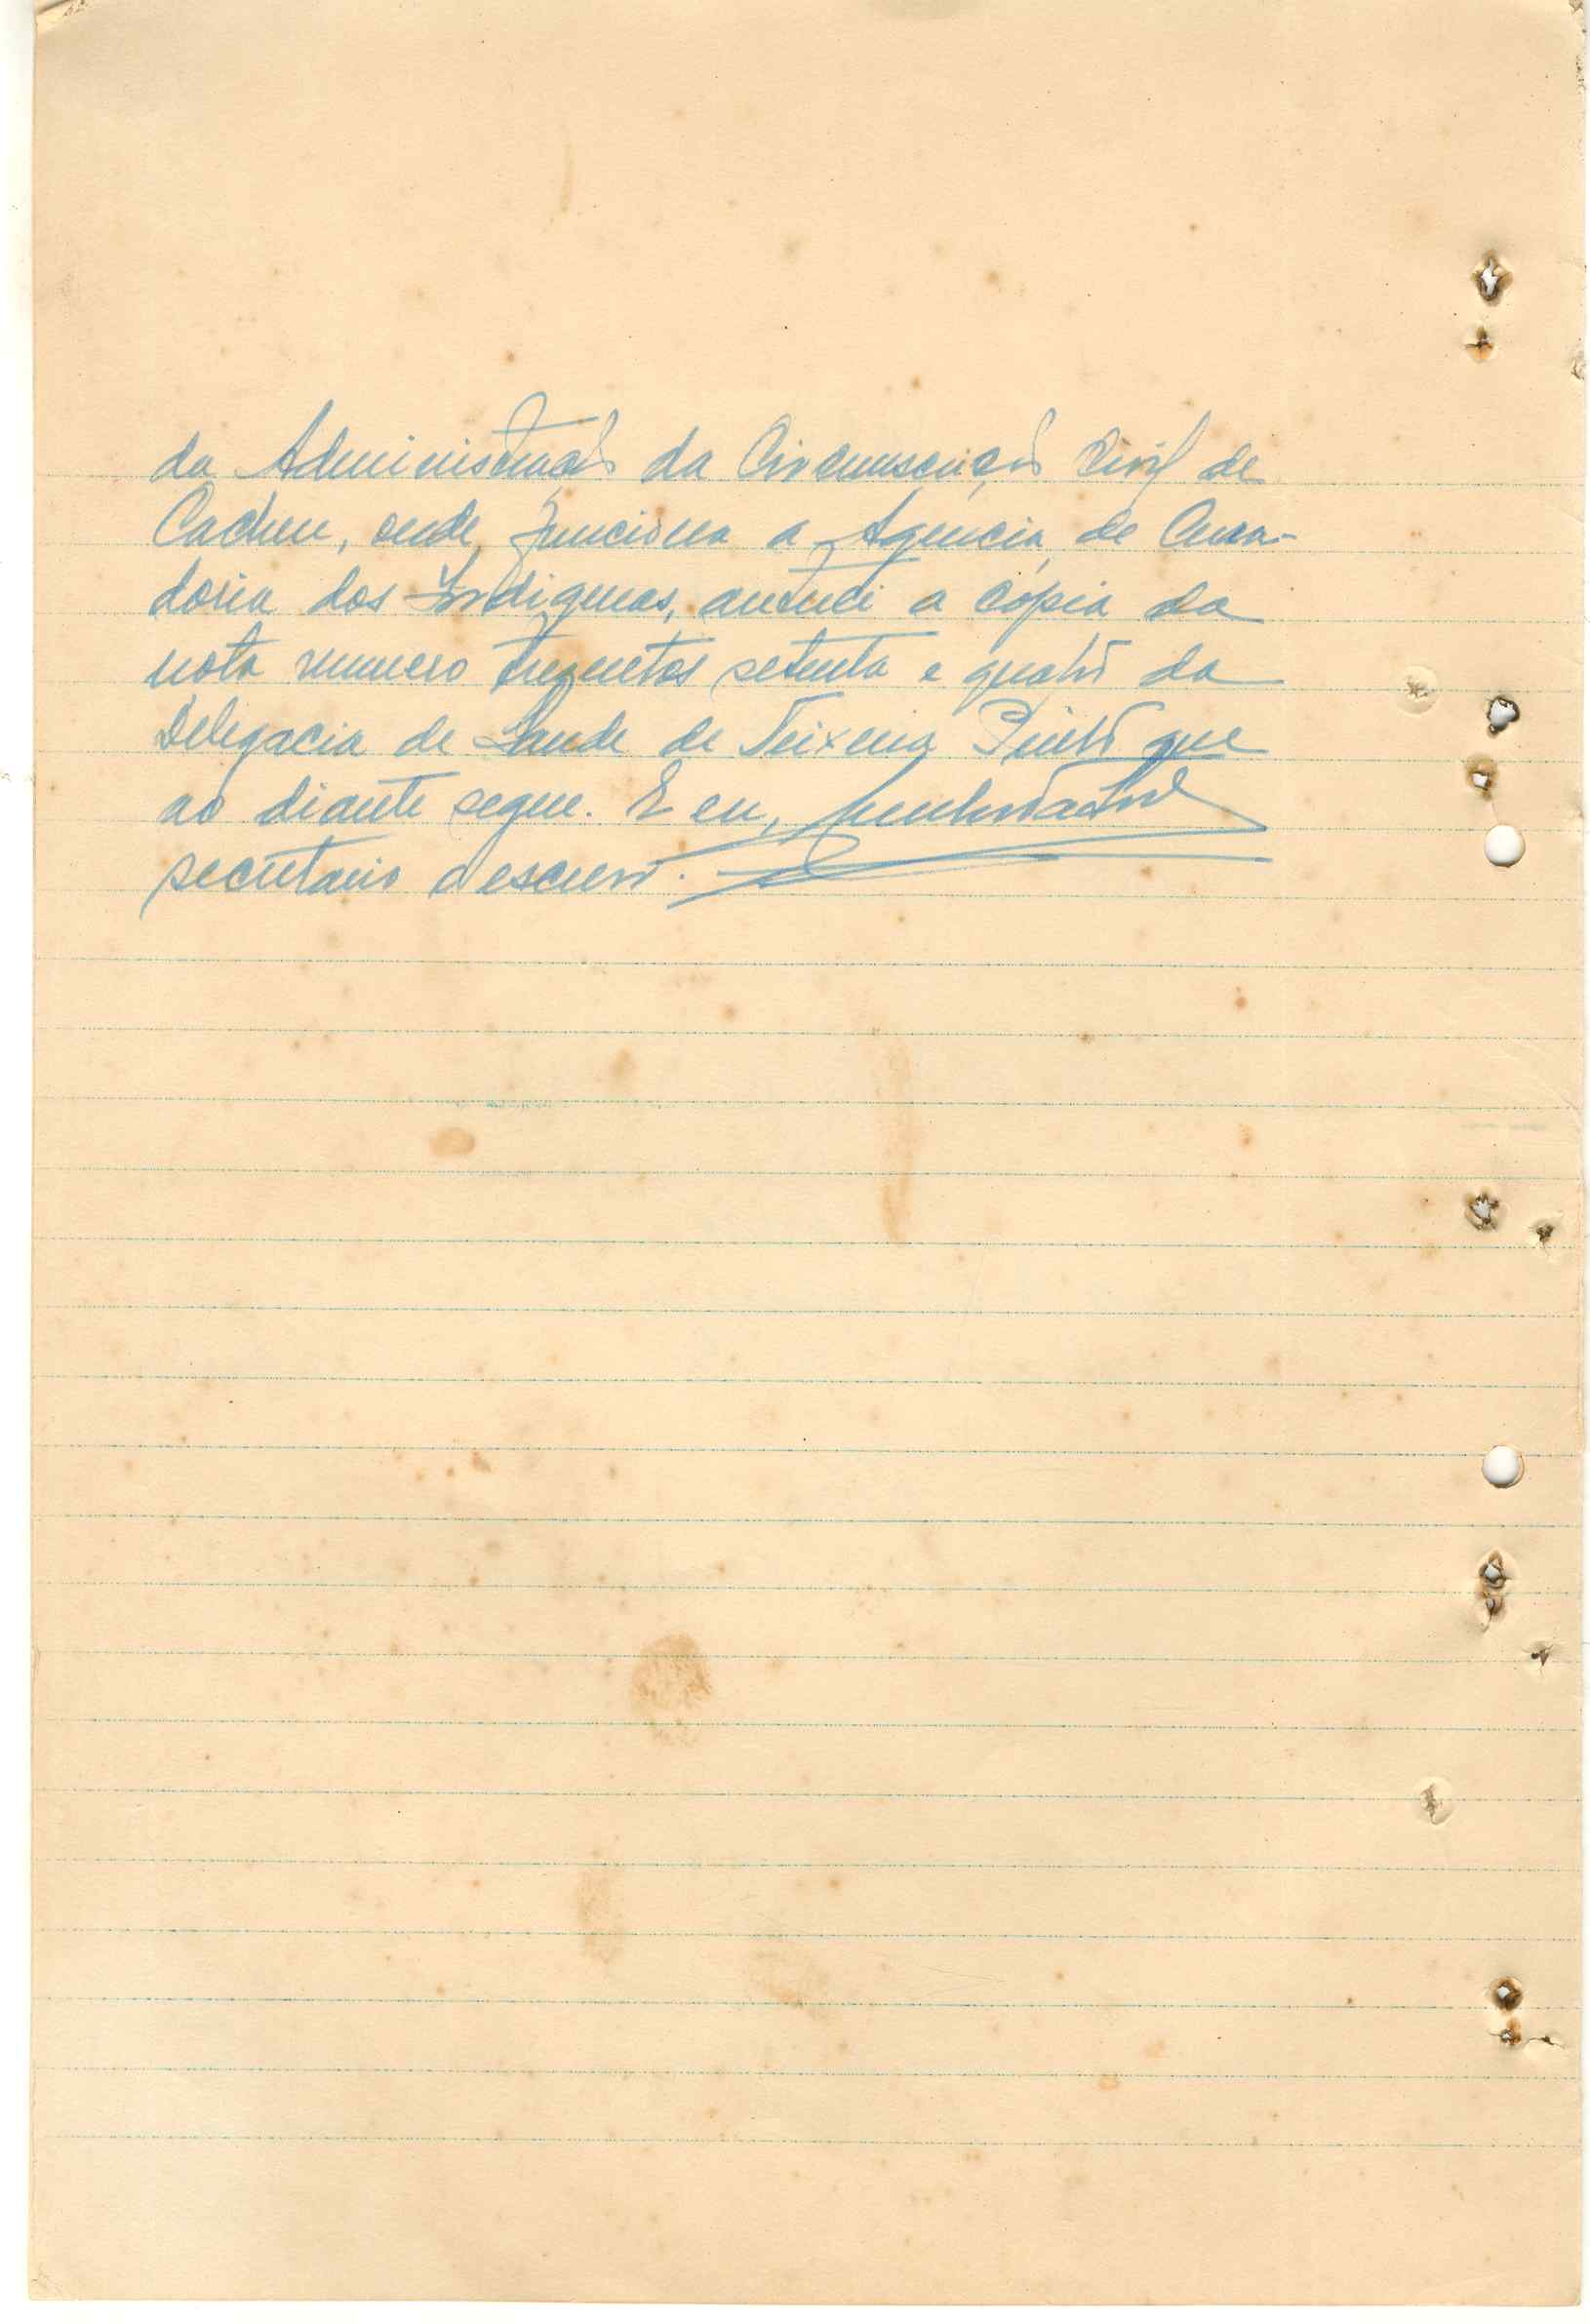 da Administração da Circunscrição Civil de
Cacheu, onde funciona a Agencia de Cura-
doria dos Indigenas, autuei a cópia da
nota numero trezentos setenta e quatro da
Delegacia de Saude de Teixeira Pinto que
ao diante segue. E eu,
secretario o escrevi.